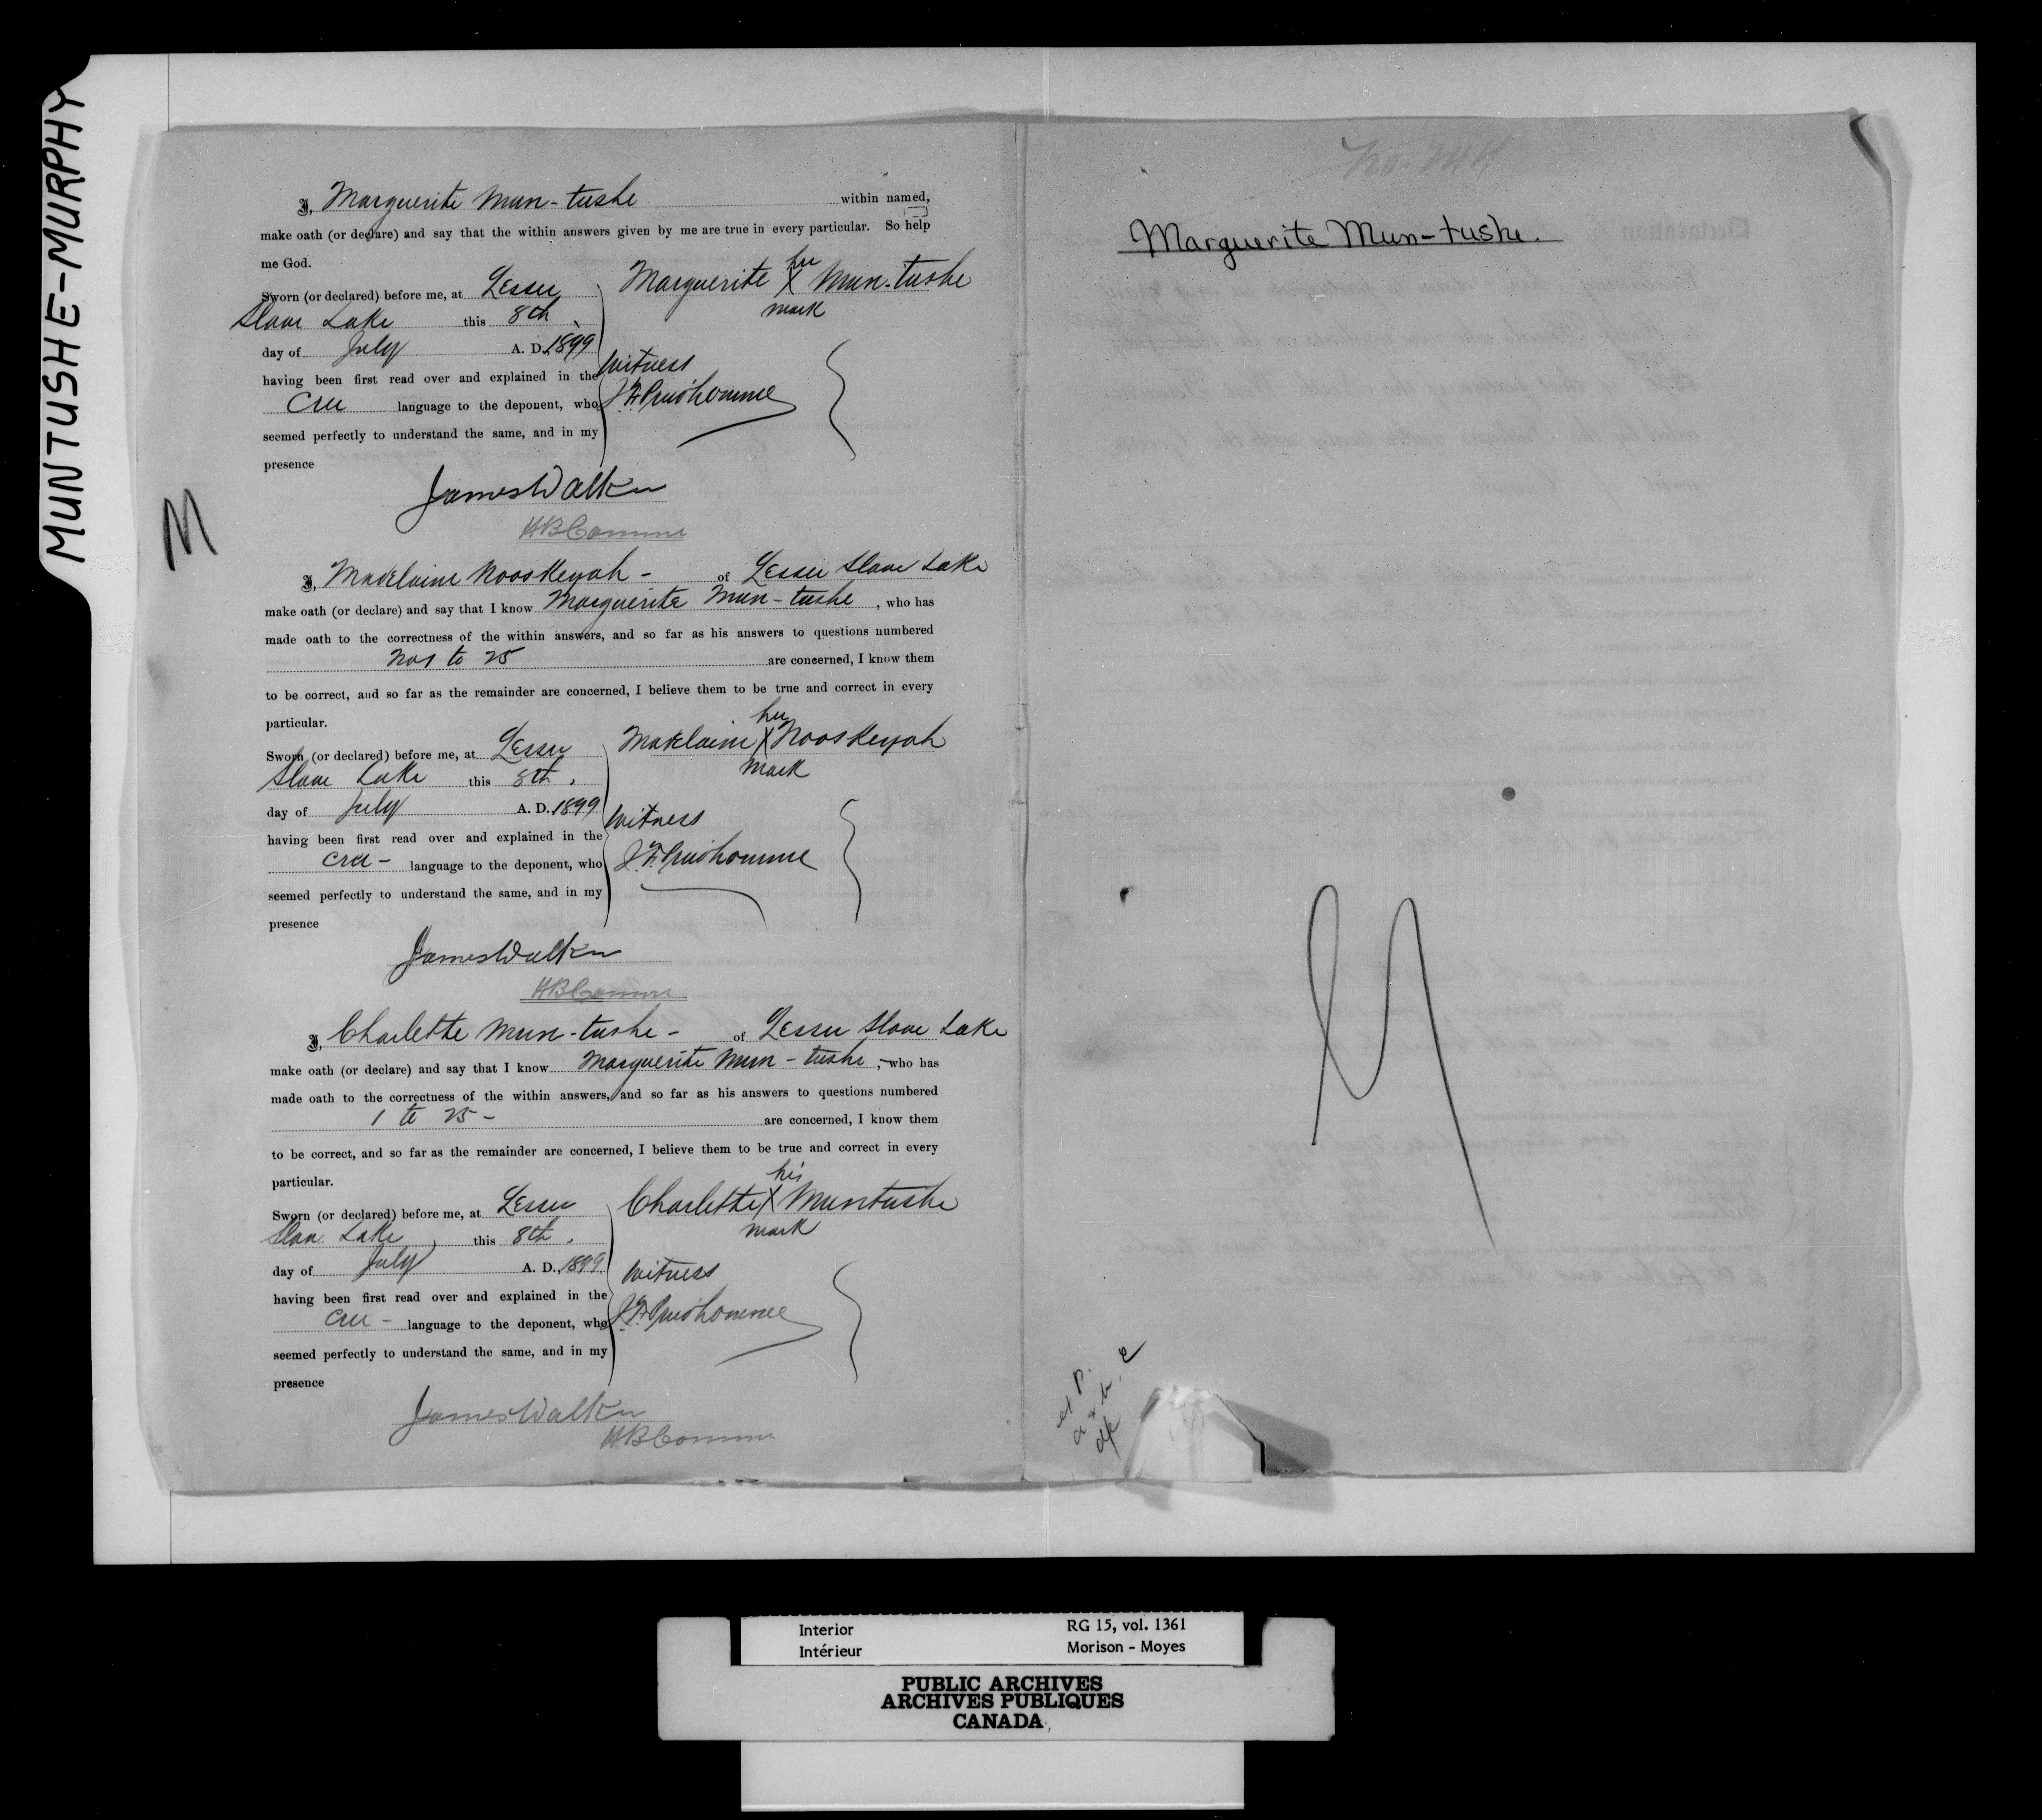 MUNTUSHE-MURPHY
M
I, Marguerite Mun-tushe within named,
make oath (or declare) and say that the within answers given by me are true in every particular. So help
me God.
Sworn (or declared) before me, at Lesser
Slave Lake this 8th
day of July A. D. 1899
having been first read over and explained in the
Cree language to the deponent, who
seemed perfectly to understand the same, and in my
presence
Marguerite her X Mun-tushe
mark
Witness
J. F. Prudhomme
James Walker
HB Commr
I, Madelaine Nooskeyah - of Lesser Slave Lake
make oath (or declare) and say that I know Marguerite Mun-tushe, who has
made oath to the correctness of the within answers, and so far as his answers to questions numbered
Nos 1 to 25 are concerned, I know them
to be correct, and so far as the remainder are concerned, I believe them to be true and correct in every
particular.
Sworn (or declared) before me, at Lesser
Slave Lake this 8th.
day of July A. D. 1899
having been first read over and explained in the
Cree - language to the deponent, who
seemed perfectly to understand the same, and in my
presence
Madelaine her X Nooskeyah
mark
Witness
J. F. Prudhomme
James Walker
HB Commr
I, Charlette Mun-tushe - of Lesser Slave Lake
make oath (or declare) and say that I know Marguerite Mun-tushe, who has
made oath to the correctness of the within answers, and so far as his answers to questions numbered
1 to 25 - are concerned, I know them
to be correct, and so far as the remainder are concerned, I believe them to be true and correct in every
particular.
Sworn (or declared) before me, at Lesser
Slave Lake, this 8th.
day of July A. D., 1899
having been first read over and explained in the
Cree - language to the deponent, who
seemed perfectly to understand the same, and in my
presence
Charlette his X Muntushe
mark
Witness
J. F. Prudhomme
James Walker
HB Commr
Marguerite Mun-tushe.
M
Interior RG 15, vol. 1361
Intérieur Morison - Moyes
PUBLIC ARCHIVES
ARCHIVES PUBLIQUES
CANADA